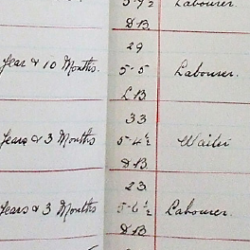 5-9½ Labourer.
DB
29
Year & 10 Months. 5-5 Labourer.
LB
33
Years & 3 Months 5-4½ Waiter
DB
23
Years & 3 Months 5-6½ Labourer.
DB